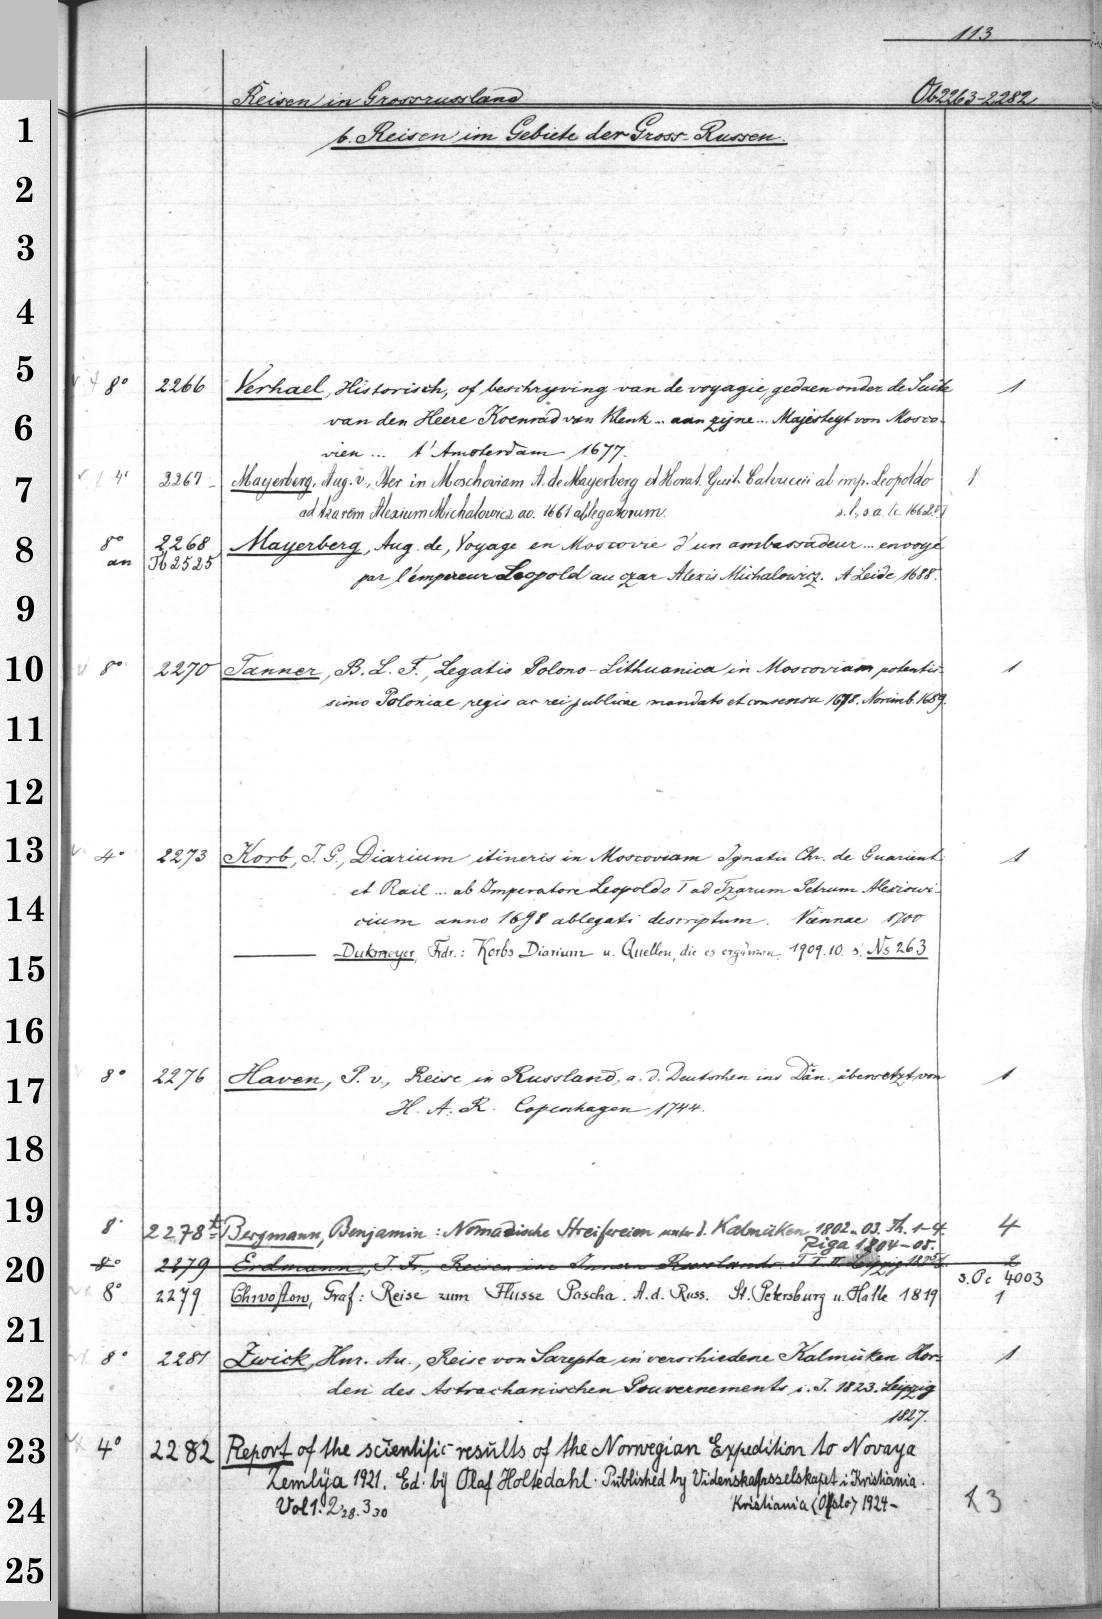 113
Reisen in Grossrussland Ob 2263-2282
b. Reisen im Gebiete der Gross-Russen.
8° 2266 Verhael, Historisch, of beschryving van de voyagie, gedaen onder de Suite 1
van den Heere Koenraad van Klenk... aan zijne... Majesteyt von Mosco-
vien ... t'Amsterdam 1677.
4° 2267 Mayerberg, Aug. v., Iter in Moschoviam A. de Mayerberg et Horat. Guil. Calvuccii ab imp. Leopoldo 1
ad tzarem Alexium Michalowicz ao. 1661 ablegatorum. s. l., s. a.
8° 2268 Mayerberg, Aug. de, Voyage en Moscovie d'un ambassadeur... envoyé
an Tb 2525 par l'empereur Leopold au czar Alexis Michalowicz. A Leide 1688.
8° 2270 Tanner, B. L. F., Legatio Polono-Lithuanica in Moscoviam potentis- 1
simo Poloniae regis ac rei publicae mandato et consensu 1678. Norimb. 1689.
4° 2273 Korb, J. G., Diarium itineris in Moscoviam Ignatii Chr. de Guarient 1
et Rail ... ab Imperatore Leopoldo I ad Tzarum Petrum Alexiowi-
cium anno 1698 ablegati descriptum. Viennae 1700
Dukmeyer, Frdr.: Korbs Diarium u. Quellen, die es ergänzen. 1909.10. s. Ns 263
8° 2276 Haven, P. v., Reise in Russland, a. d. Deutschen ins Dän. übersetzt von 1
H. A. R. Copenhagen 1744.
8° 2278 Bergmann, Benjamin: Nomadische Streifereien unter d. Kalmüken 1802 u. 03. Th. 1-4. 4
Riga 1804-05.
8° 2279 Erdmann, J. Fr., Reisen im Innern Russlands. T I. II Leipzig 2
s. Pc 4003
8° 2279 Chwostow, Graf: Reise zum Flusse Pascha. A. d. Russ. St. Petersburg u. Halle 1819 1
8° 2281 Zwick, Hnr. Au., Reise von Sarepta, in verschiedene Kalmüken Hor- 1
den des Astrachanischen Gouvernements i. J. 1823. Leipzig
1827.
4° 2282 Report of the scientific results of the Norwegian Expedition to Novaya
Zemlya 1921. Ed. by Olaf Holtedahl. Published by Videnskapsselskapet i Kristiania.
Vol 1. 2 28. 3 30 Kristiania (Oslo) 1924- 3
1
2
3
4
5
6
7
8
9
10
11
12
13
14
15
16
17
18
19
20
21
22
23
24
25